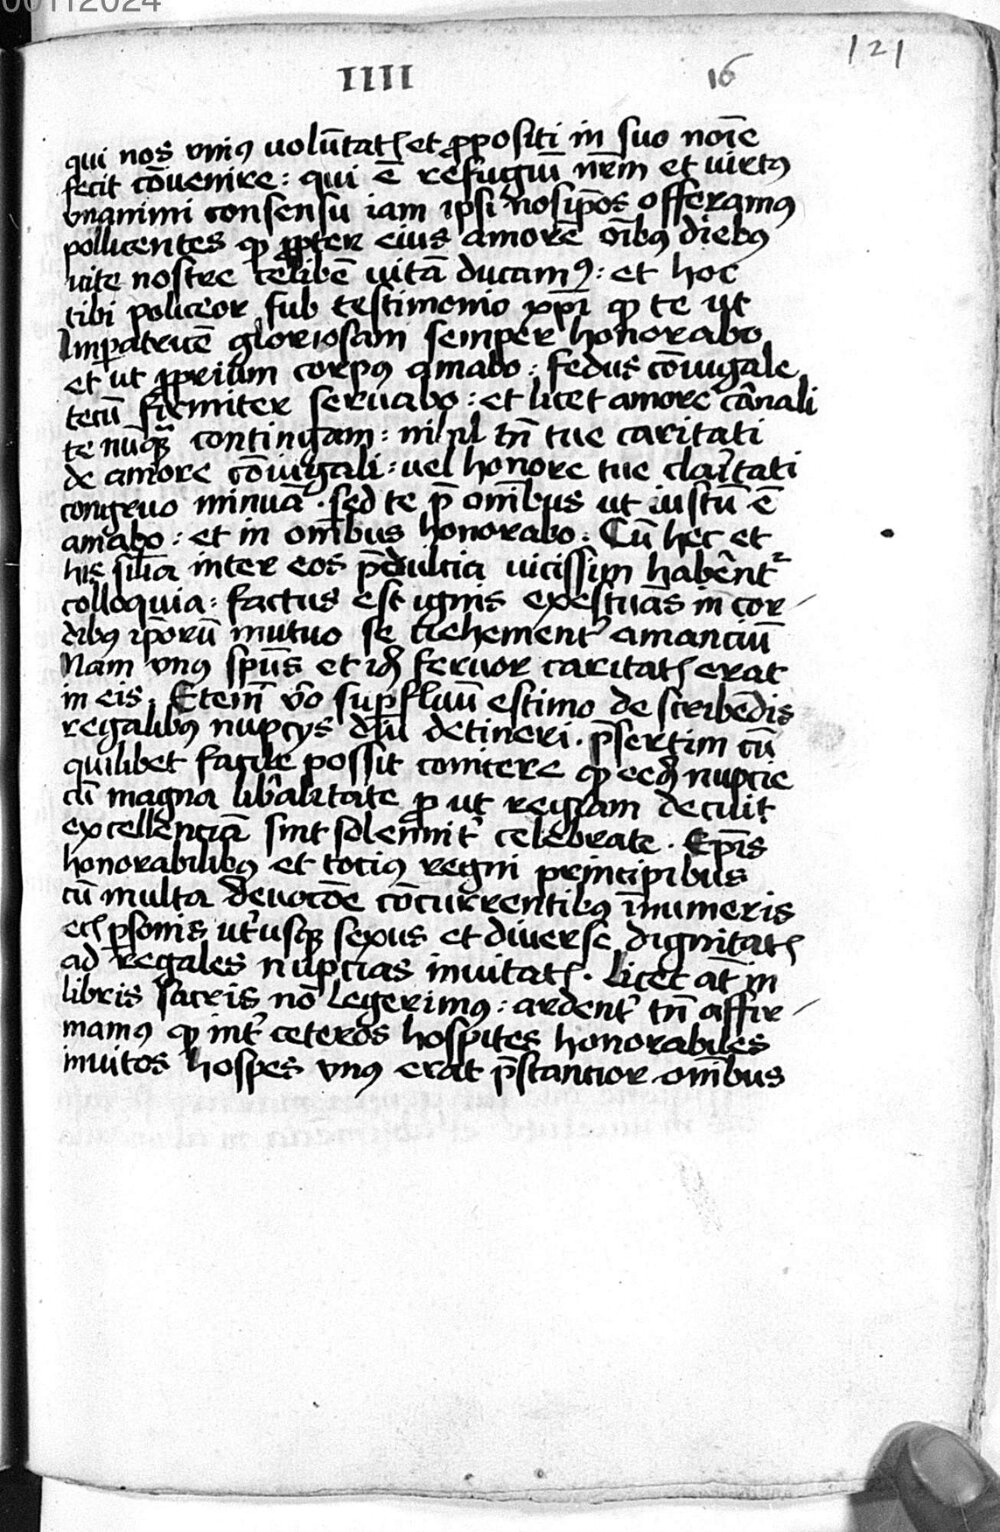 00112024
121
IIII 16
qui nos vniꝯ uolūtatꝭ et ꝓpositi in suo noīe
fecit cōuenire : qui ē refugiū nr̄m et uirtꝯ
vnanimi consensu iam ipsi nosip̄os offeramꝯ
pollicentes ꝙ ꝓpter eius amorē oībꝯ diebꝯ
uite nostre celibē uitā ducamꝯ : et hoc
tibi policeor sub testimonio xp̄i ꝙ te ut
Imꝑatricē gloriosam semper honorabo
et ut ꝓprium corpꝯ amabo : fedus cōiugale
tecū firmiter seruabo : et licet amore carnali
te nūqꝫ contingam : nihil tn̄ tue caritati
de amore cōiugali : uel honore tue claritati
congruo minuā . sed te p̄ om̄ibus ut iustū ē
amabo : et in om̄ibus honorabo . Cū hec et
his sil̄ia inter eos p̄dulcia uicissim haberent᷑
colloquia : factus est ignis exestuās in cor⸗
dibꝯ ip̄orū mutuo se uehement᷑ amanciū
Nam vnꝯ sp̄us et idꝭ feruor caritatꝭ erat
in eis . Etem̄ v̄o suꝑfluū estimo de scribēdis
regalibꝯ nupcijs diu detineri . p̄sertim cū
quilibet facile possit conicere ꝙ eedꝭ nupcie
cū magna liberalitate ꝓ ut regiam decuit
excellenciā sint solennit᷑ celebrate . Ep̄is
honorabilibꝯ et tociꝯ regni principibus
cū multa deuocōe cōcurrentibꝯ īnumeris
ecꝭ ꝑsonis ut᷑usqꝫ sexus et diuerse dignitatꝭ
ad regales nupcias inuitatꝭ . Licet at̄ in
libris sacris nō legerimꝯ : ardent᷑ tn̄ affir⸗
mamꝯ ꝙ int᷑ ceteros hospites honorabiles
inuitos hospes vnꝯ erat p̄stantior om̄ibus